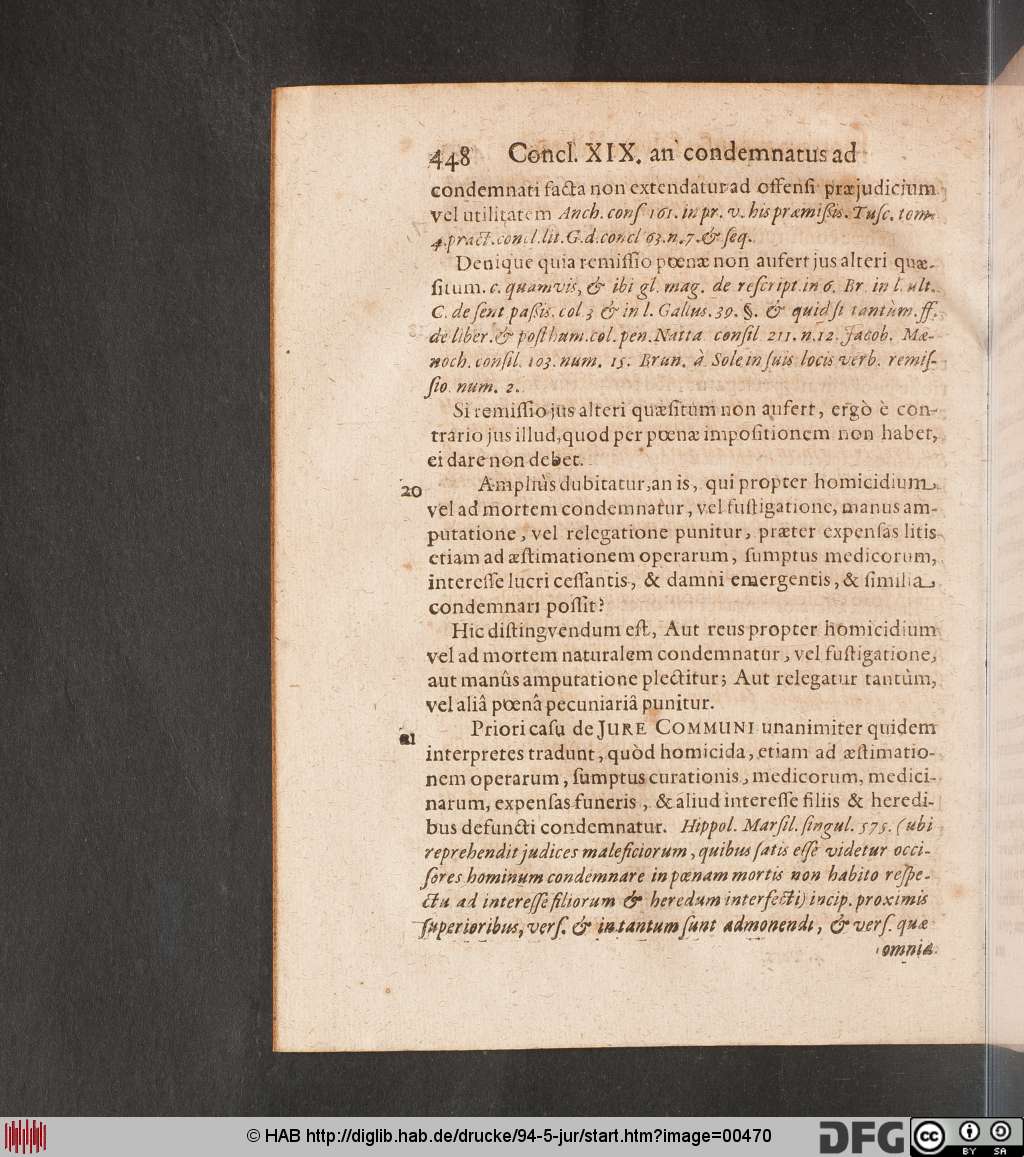 448 Concl. XIX. an condemnatus ad
condemnati facta non extendatur ad offensi præjudicium
vel utilitatem Anch. cons 161. in pr. v. his præmissis. Tusc. tom
4. pract. concl. lit. G. d. concl 63. n. 7. & seq.
Denique quia remissio pœnæ non aufert jus alteri quæ-
situm. c. quamvis, & ibi gl. mag. de rescript. in 6. Br. in l. ult.
C. de sent passis. col. 3 & in l. Gallus. 39. §. & quid st tantùm. ff.
de liber. & posthum. col. pen. Natta consil 211. n. 12. Jacob. Mæ-
noch. consil. 103. num. 15. Brun. à Sole in suis locis verb. remis-
sio num. 2.
Si remissio jus alteri quæsitum non aufert, ergò è con-
trario jus illud, quod per pœnæ impositionem non habet,
ei dare non debet.
20 Ampliùs dubitatur, an is, qui propter homicidium
vel ad mortem condemnatur, vel fustigatione, manus am-
putatione, vel relegatione punitur, præter expensas litis
etiam ad æstimationem operarum, sumptus medicorum,
interesse lucri cessantis, & damni emergentis, & similia
condemnari possit?
Hic distingvendum est, Aut reus propter homicidium
vel ad mortem naturalem condemnatur, vel fustigatione,
aut manûs amputatione plectitur; Aut relegatur tantùm,
vel aliâ pœnâ pecuniariâ punitur.
21 Priori casu de JURE COMMUNI unanimiter quidem
interpretes tradunt, quòd homicida, etiam ad æstimatio-
nem operarum, sumptus curationis, medicorum, medici-
narum, expensas funeris, & aliud interesse filiis & heredi-
bus defuncti condemnatur. Hippol. Marsil. singul. 575. (ubi
reprehendit judices maleficiorum, quibus satis esse videtur occi-
sores hominum condemnare in pœnam mortis non habito respe-
ctu ad interesse filiorum & heredum interfecti) incip. proximis
superioribus, vers. & in tantum sunt admonendi, & vers. quæ
omnia.
© HAB http://diglib.hab.de/drucke/94-5-jur/start.htm?image=00470
DFG
cc
BY SA